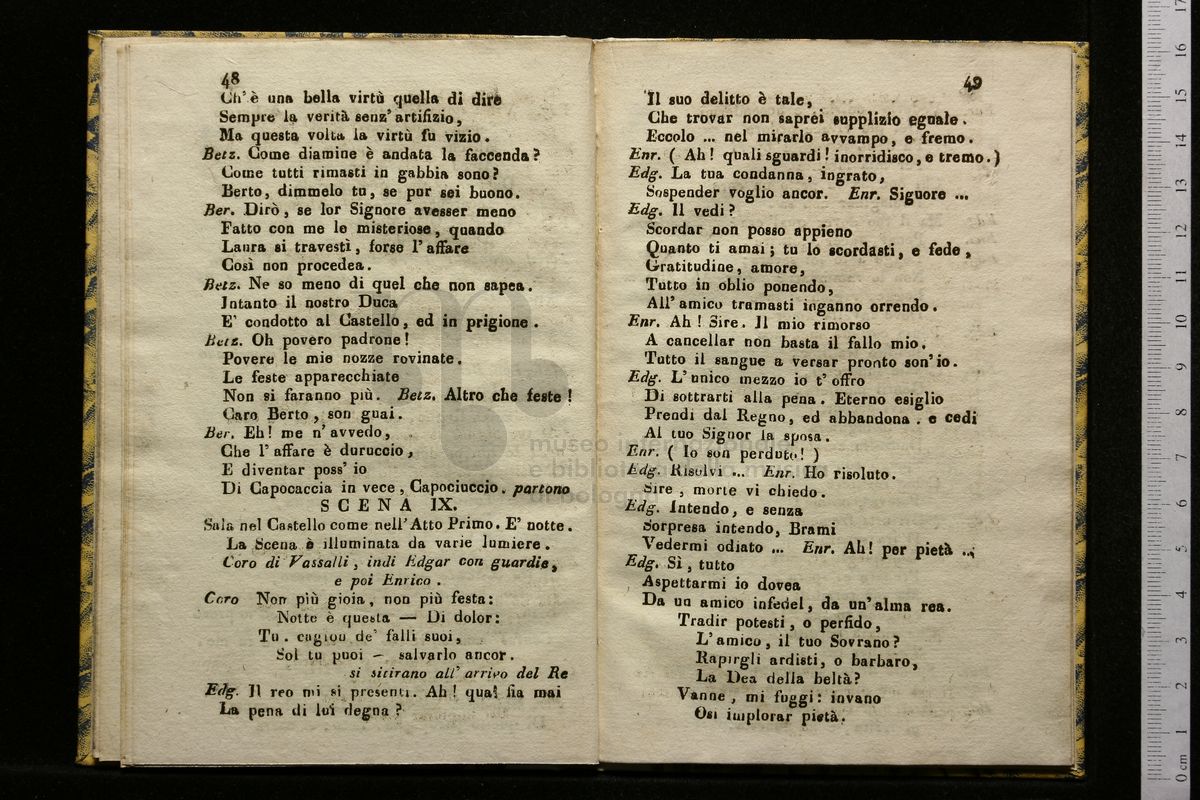 48
Ch'è una bella virtù quella di dire
Sempre la verità senz' artifizio,
Ma questa volta la virtù fu vizio.
Betz. Come diamine è andata la faccenda?
Come tutti rimasti in gabbia sono?
Berto, dimmelo tu, se pur sei buono.
Ber. Dirò, se lor Signore avesser meno
Fatto con me le misteriose, quando
Laura si travestì, forse l'affare
Così non procedea.
Betz. Ne so meno di quel che non sapea.
Intanto il nostro Duca
E' condotto al Castello, ed in prigione.
Betz. Oh povero padrone!
Povere le mie nozze rovinate.
Le feste apparecchiate
Non si faranno più. Betz. Altro che feste!
Caro Berto, son guai.
Ber. Eh! me n'avvedo,
Che l'affare è duruccio,
E diventar poss' io
Di Capocaccia in vece, Capociuccio. partono
SCENA IX.
Sala nel Castello come nell' Atto Primo. E' notte.
La Scena è illuminata da varie lumiere.
Coro di Vassalli, indi Edgar con guardie,
e poi Enrico.
Coro Non più gioia, non più festa:
Notte è questa — Di dolor:
Tu. cagion de' falli suoi,
Sol tu puoi — salvarlo ancor.
si sitirano all' arrivo del Re
Edg. Il reo mi si presenti. Ah! qual fia mai
La pena di lui degna?
49
Il suo delitto è tale,
Che trovar non saprei supplizio eguale.
Eccolo ... nel mirarlo avvampo, e fremo.
Enr. ( Ah! quali sguardi! inorridisco, e tremo.)
Edg. La tua condanna, ingrato,
Sospender voglio ancor. Enr. Signore ...
Edg. Il vedi?
Scordar non posso appieno
Quanto ti amai; tu lo scordasti, e fede,
Gratitudine, amore,
Tutto in oblio ponendo,
All' amico tramasti inganno orrendo.
Enr. Ah! Sire. Il mio rimorso
A cancellar non basta il fallo mio.
Tutto il sangue a versar pronto son' io.
Edg. L'unico mezzo io t'offro
Di sottrarti alla pena. Eterno esiglio
Prendi dal Regno, ed abbandona. e cedi
Al tuo Signor la sposa.
Enr. ( Io son perduto! )
Edg. Risolvi ... Enr. Ho risoluto.
Sire, morte vi chiedo.
Edg. Intendo, e senza
Sorpresa intendo, Brami
Vedermi odiato ... Enr. Ah! per pietà ...
Edg. Sì, tutto
Aspettarmi io dovea
Da un amico infedel, da un'alma rea.
Tradir potesti, o perfido,
L'amico, il tuo Sovrano?
Rapirgli ardisti, o barbaro,
La Dea della beltà?
Vanne, mi fuggi: invano
Osi implorar pietà.